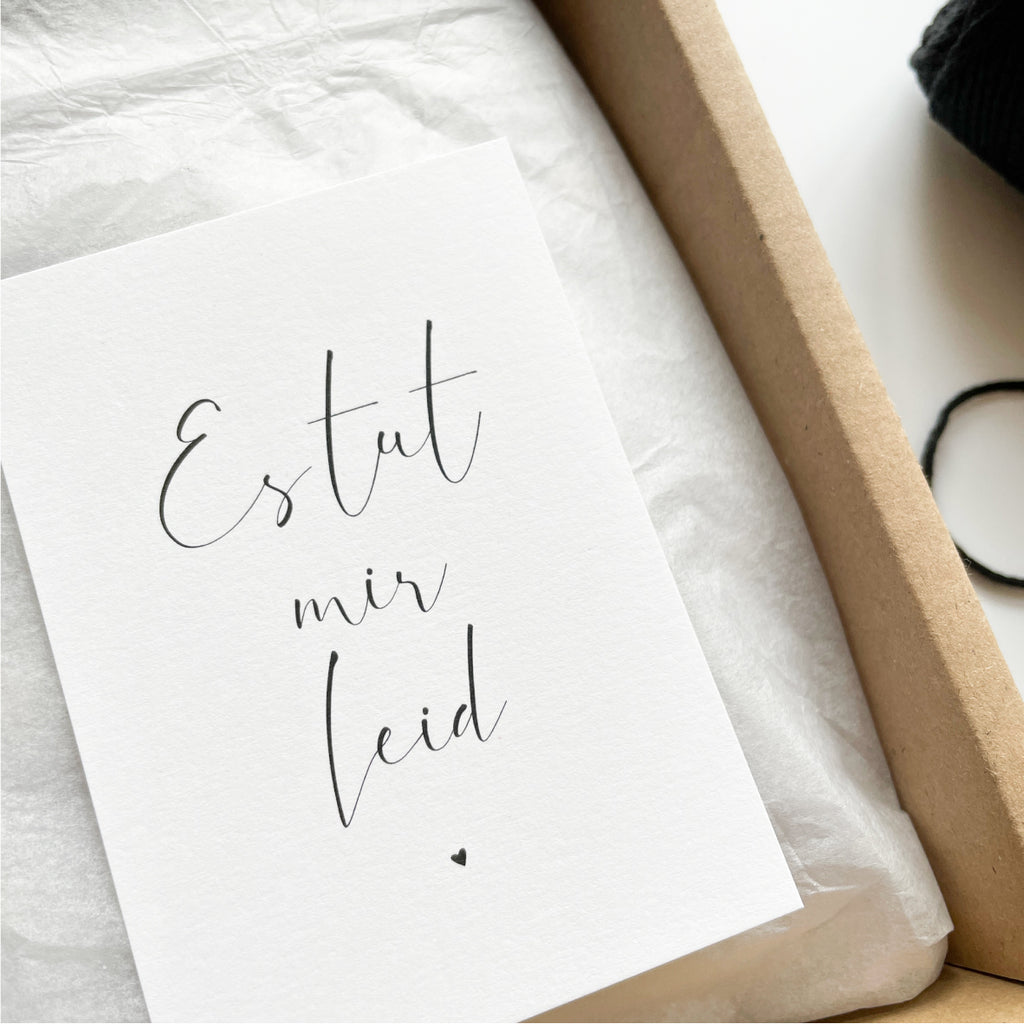 Es tut
mir
leid